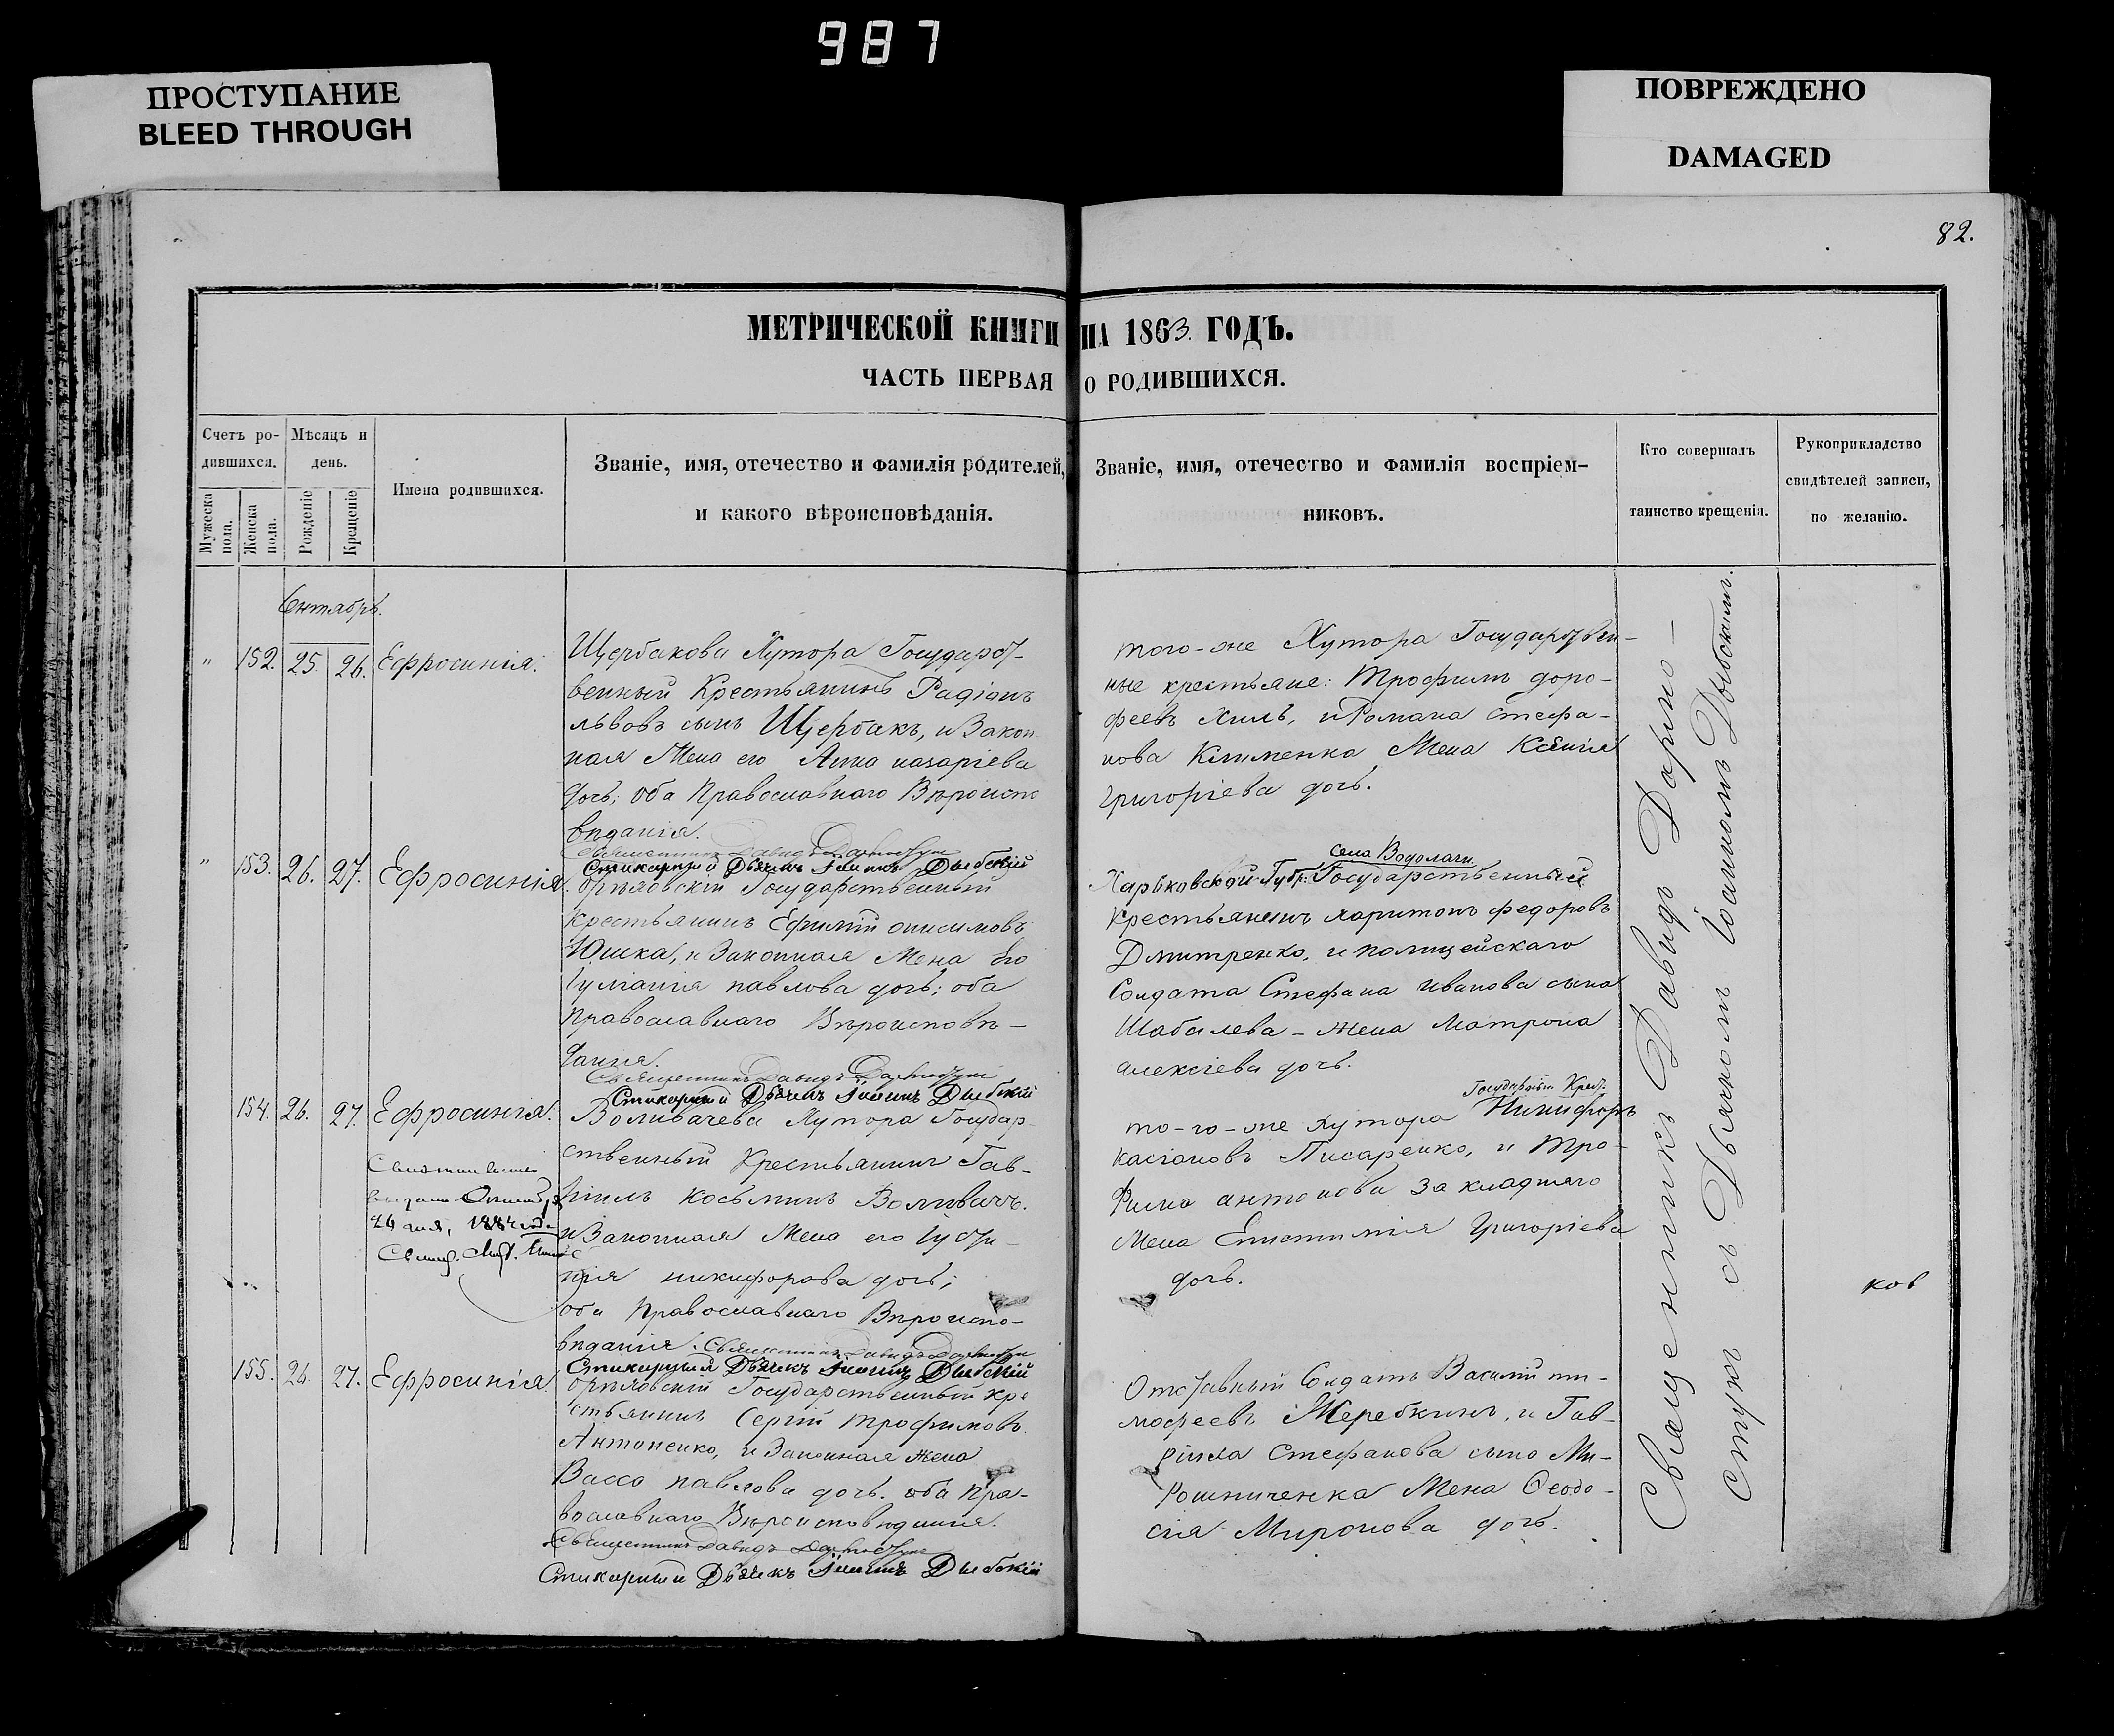 987
ПРОСТУПАНИЕ
BLEED THROUGH
ПОВРЕЖДЕНО
DAMAGED
82.
МЕТРИЧЕСКОЙ КНИГИ НА 1863. ГОДЪ.
ЧАСТЬ ПЕРВАЯ О РОДИВШИХСЯ.
Счетъ ро-
дившихся.
Мужеска
пола.
Женска
пола.
Мѣсяцъ и
день.
Рожденіе
Крещеніе
Имена родившихся.
Званіе, имя, отечество и фамилія родителей,
и какого вѣроисповѣданія.
Званіе, имя, отечество и фамилія воспріем-
никовъ.
Кто совершалъ
таинство крещенія.
Рукоприкладство
свидѣтелей записи,
по желанію.
" 152. 25. 26. Ефросинія.
Щербакова Хутора Государст-
венный Крестьянинъ Радіонъ
львовъ сынъ Щербакъ, и Закон
ная Жена его Анна назаріева
дочь; оба Православнаго Вѣроиспо
вѣданія.
Священникъ Давидъ
Стихарный Дьячекъ Іоаннъ
того-же Хутора Государствен-
ные крестьяне: Трофимъ доро-
феевъ Хиль, и Романа стефа-
нова Клименка Жена Ксенія
григоріева дочь.
" 153. 26. 27. Ефросинія.
Орѣховскій Государственный
Крестьянинъ Ефимій онисимовъ
Юшка, и Законная Жена его
Іуліанія павлова дочь; оба
православнаго Вѣроисповѣ-
данія.
Священникъ Давидъ
Стихарный Дьячекъ Іоаннъ
села Водолаги
Харьковской Губр: Государственный
Крестьянинъ харитонъ федоровъ
Дмитренко, и полицейскаго
Солдата Стефана иванова сына
Шабалева - жена Матрона
алексіева дочь.
154. 26. 27. Ефросинія.
Воливачева Хутора Государ
ственный Крестьянинъ Гав-
ріилъ косьминъ Воливачъ.
и Законная Жена его Іусти-
нія никифорова дочь;
оба Православнаго Вѣроиспо-
вѣданія. Священникъ Давидъ
Стихарный Дьячекъ Іоаннъ
26 дня, 1884 года
Государствен Крест:
то-го-же Хутора Никифоръ
касіановъ Писаренко, и Тро-
фима антонова
Жена Григоріева
дочь.
ков
155. 26. 27. Ефросинія
Орѣховскій Государственный кре
стьянинъ Сергій трофимовъ
Антоненко, и Законная жена
Васса павлова дочь. оба Пра-
вославнаго Вѣроисповѣданія.
Священникъ Давидъ
Стихарный Дьячекъ Іоаннъ
Отставный Солдатъ Василій ти-
мофеевъ Жеребкинъ, и Гав-
ріила Стефанова сына Ми-
рошниченка Жена Ѳеодо-
сія Миронова дочь.
Священникъ Давидъ Дарно-
стукъ съ Дьякономъ Іоанномъ